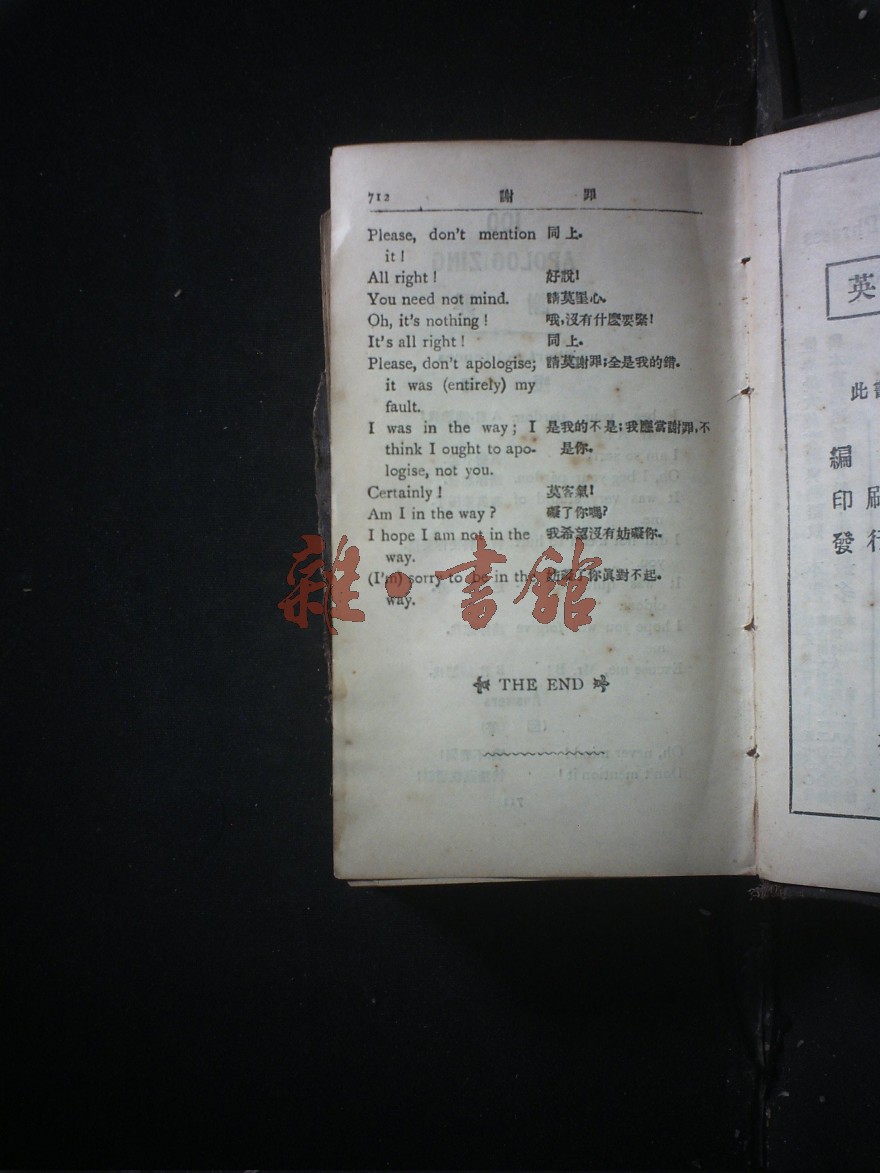 712 謝 罪
Please, don't mention 同上.
it!
All right! 好說!
You need not mind. 請莫罣心.
Oh, it's nothing! 哦,沒有什麼要緊!
It's all right! 同上.
Please, don't apologise; 請莫謝罪;全是我的錯.
it was (entirely) my
fault.
I was in the way; I 是我的不是;我應當謝罪,不
think I ought to apo- 是你.
logise, not you.
Certainly! 莫客氣!
Am I in the way? 礙了你嗎?
I hope I am not in the 我希望沒有妨礙你.
way.
(I'm) sorry to be in the 妨礙了你眞對不起.
way.
THE END
雜·書館
英
此書
編
印 刷
發 行